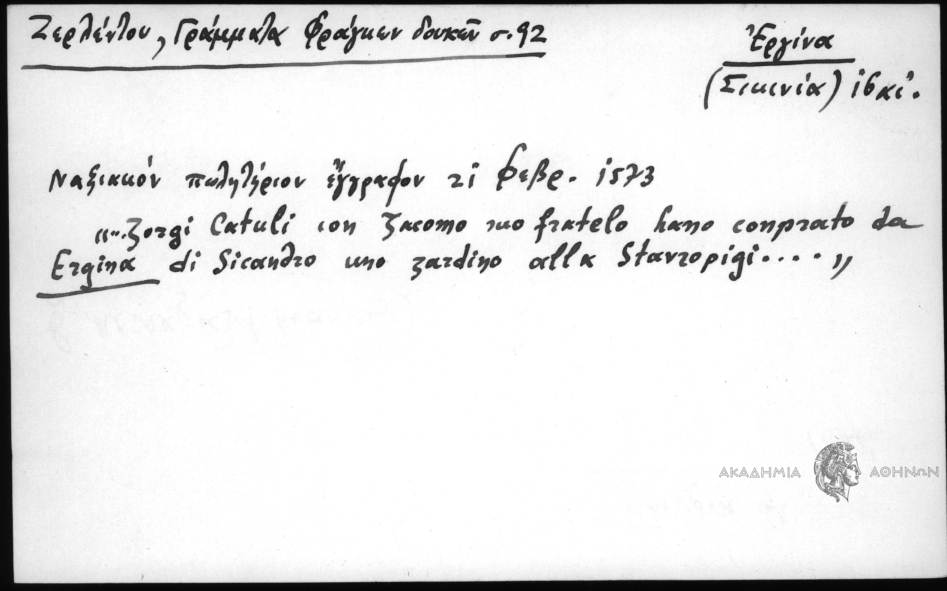 Ζερλέντου, Γράμματα Φράγκων δουκῶν σ. 92
Ἐργίνα
(Σικινία) ἰδκί.
Ναξιακόν πωλητήριον ἔγγραφον 21 Φεβρ. 1573
"... Zorgi Catuli con Jacomo suo fratelo hano conprato da
Ergina di Sicandro uno zardino alla Stavropigi .... "
ΑΚΑΔΗΜΙΑ ΑΘΗΝΩΝ